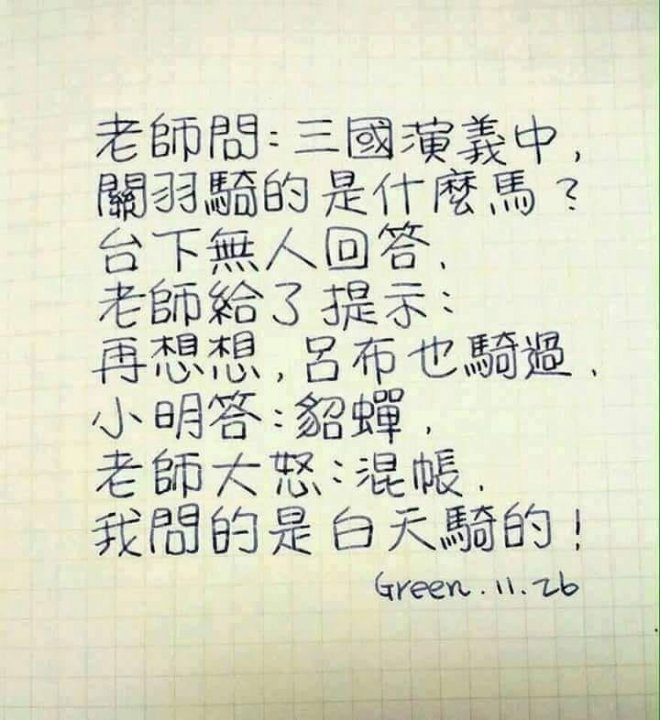 老師問：三國演義中，
關羽騎的是什麼馬？
台下無人回答．
老師給了提示：
再想想，呂布也騎過．
小明答：貂蟬．
老師大怒：混帳．
我問的是白天騎的！
Green.11.26